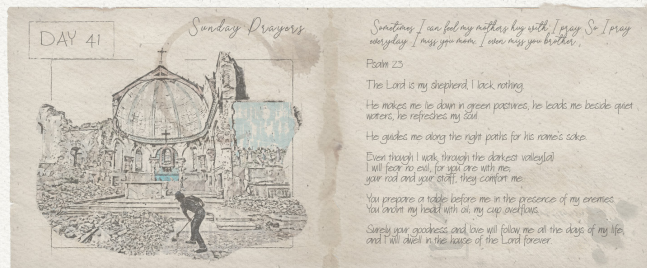 DAY 41
Sunday Prayers
Sometimes I can feel my mothers hug with I pray. So I pray
everyday. I miss you mom. I even miss you brother.
Psalm 23
The Lord is my shepherd, I lack nothing.
He makes me lie down in green pastures, he leads me beside quiet
waters, he refreshes my soul.
He guides me along the right paths for his name's sake.
Even though I walk through the darkest valley,[a]
I will fear no evil, for you are with me;
your rod and your staff, they comfort me.
You prepare a table before me in the presence of my enemies.
You anoint my head with oil; my cup overflows.
Surely your goodness and love will follow me all the days of my life,
and I will dwell in the house of the Lord forever.